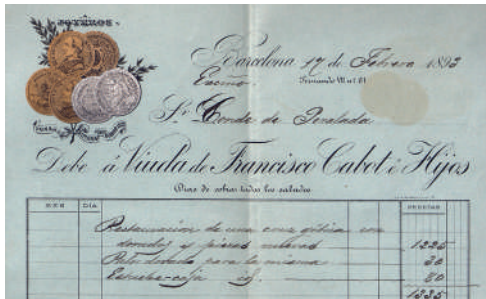 JOYEROS
Barcelona 17 de Febrero 1893
Escmo. Fernando VII nº 61
Sr. Conde de Peralada
Debe á Viuda de Francisco Cabot é Hijos
Dias de cobros todos los sabados
MES DIA PESETAS
Restauracion de una cruz gótica con
dorado y piezas nuevas 1225
para la misma 30
Estuche-caja id. 80
1335